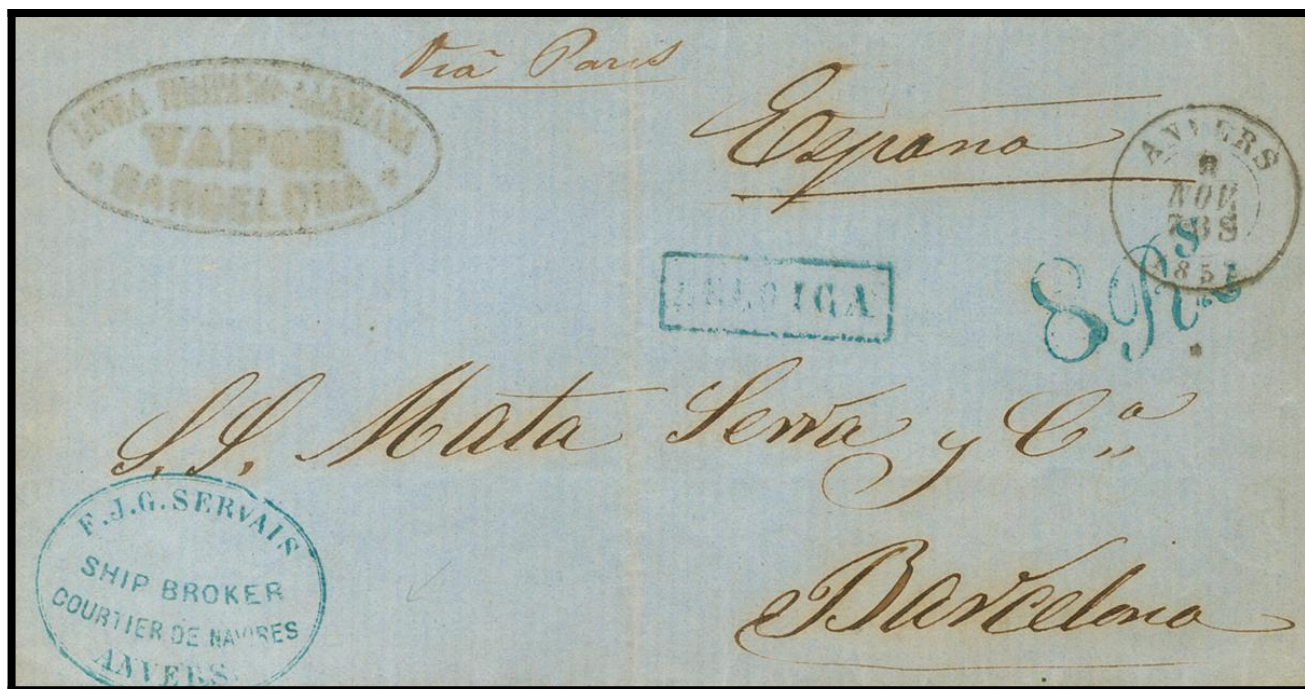 Viã Paris
LINEA HISPANO ALEMANA
VAPOR
BARCELONA
España
ANVERS
8
NOV
185
BELGICA
8 Rs
S. S. Mata Serra y Cª
F.J.G. SERVAIS
SHIP BROKER
COURTIER DE NAVIRES
ANVERS
Barcelona